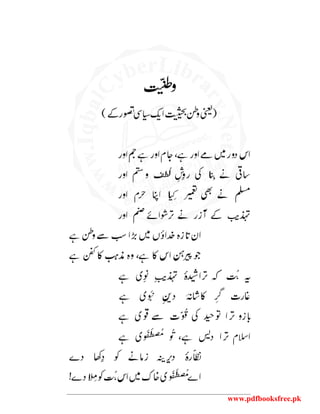 وطنیّت
(یعنی وطن بحیثیت ایک سیاسی تصور کے)
اس دور میں مے اور ہے، جام اور ہے جم اور
ساقی نے بنا کی روِشِ لُطف و ستم اور
مسلم نے بھی تعمیر کِیا اپنا حرم اور
تہذیب کے آزر نے ترشوائے صنم اور
ان تازہ خداؤں میں بڑا سب سے وطن ہے
جو پیرہن اس کا ہے، وہ مذہب کا کفن ہے
یہ بُت کہ تراشیدۂ تہذیبِ نوی ہے
غارت گرِ کاشانۂ دینِ نبَوی ہے
بازو ترا توحید کی قوّت سے قوی ہے
اسلام ترا دیس ہے، تُو مُصطفوی ہے
نظّارۂ دیرینہ زمانے کو دِکھا دے
اے مُصطفَوی خاک میں اس بُت کو مِلا دے!
www.pdfbooksfree.pk